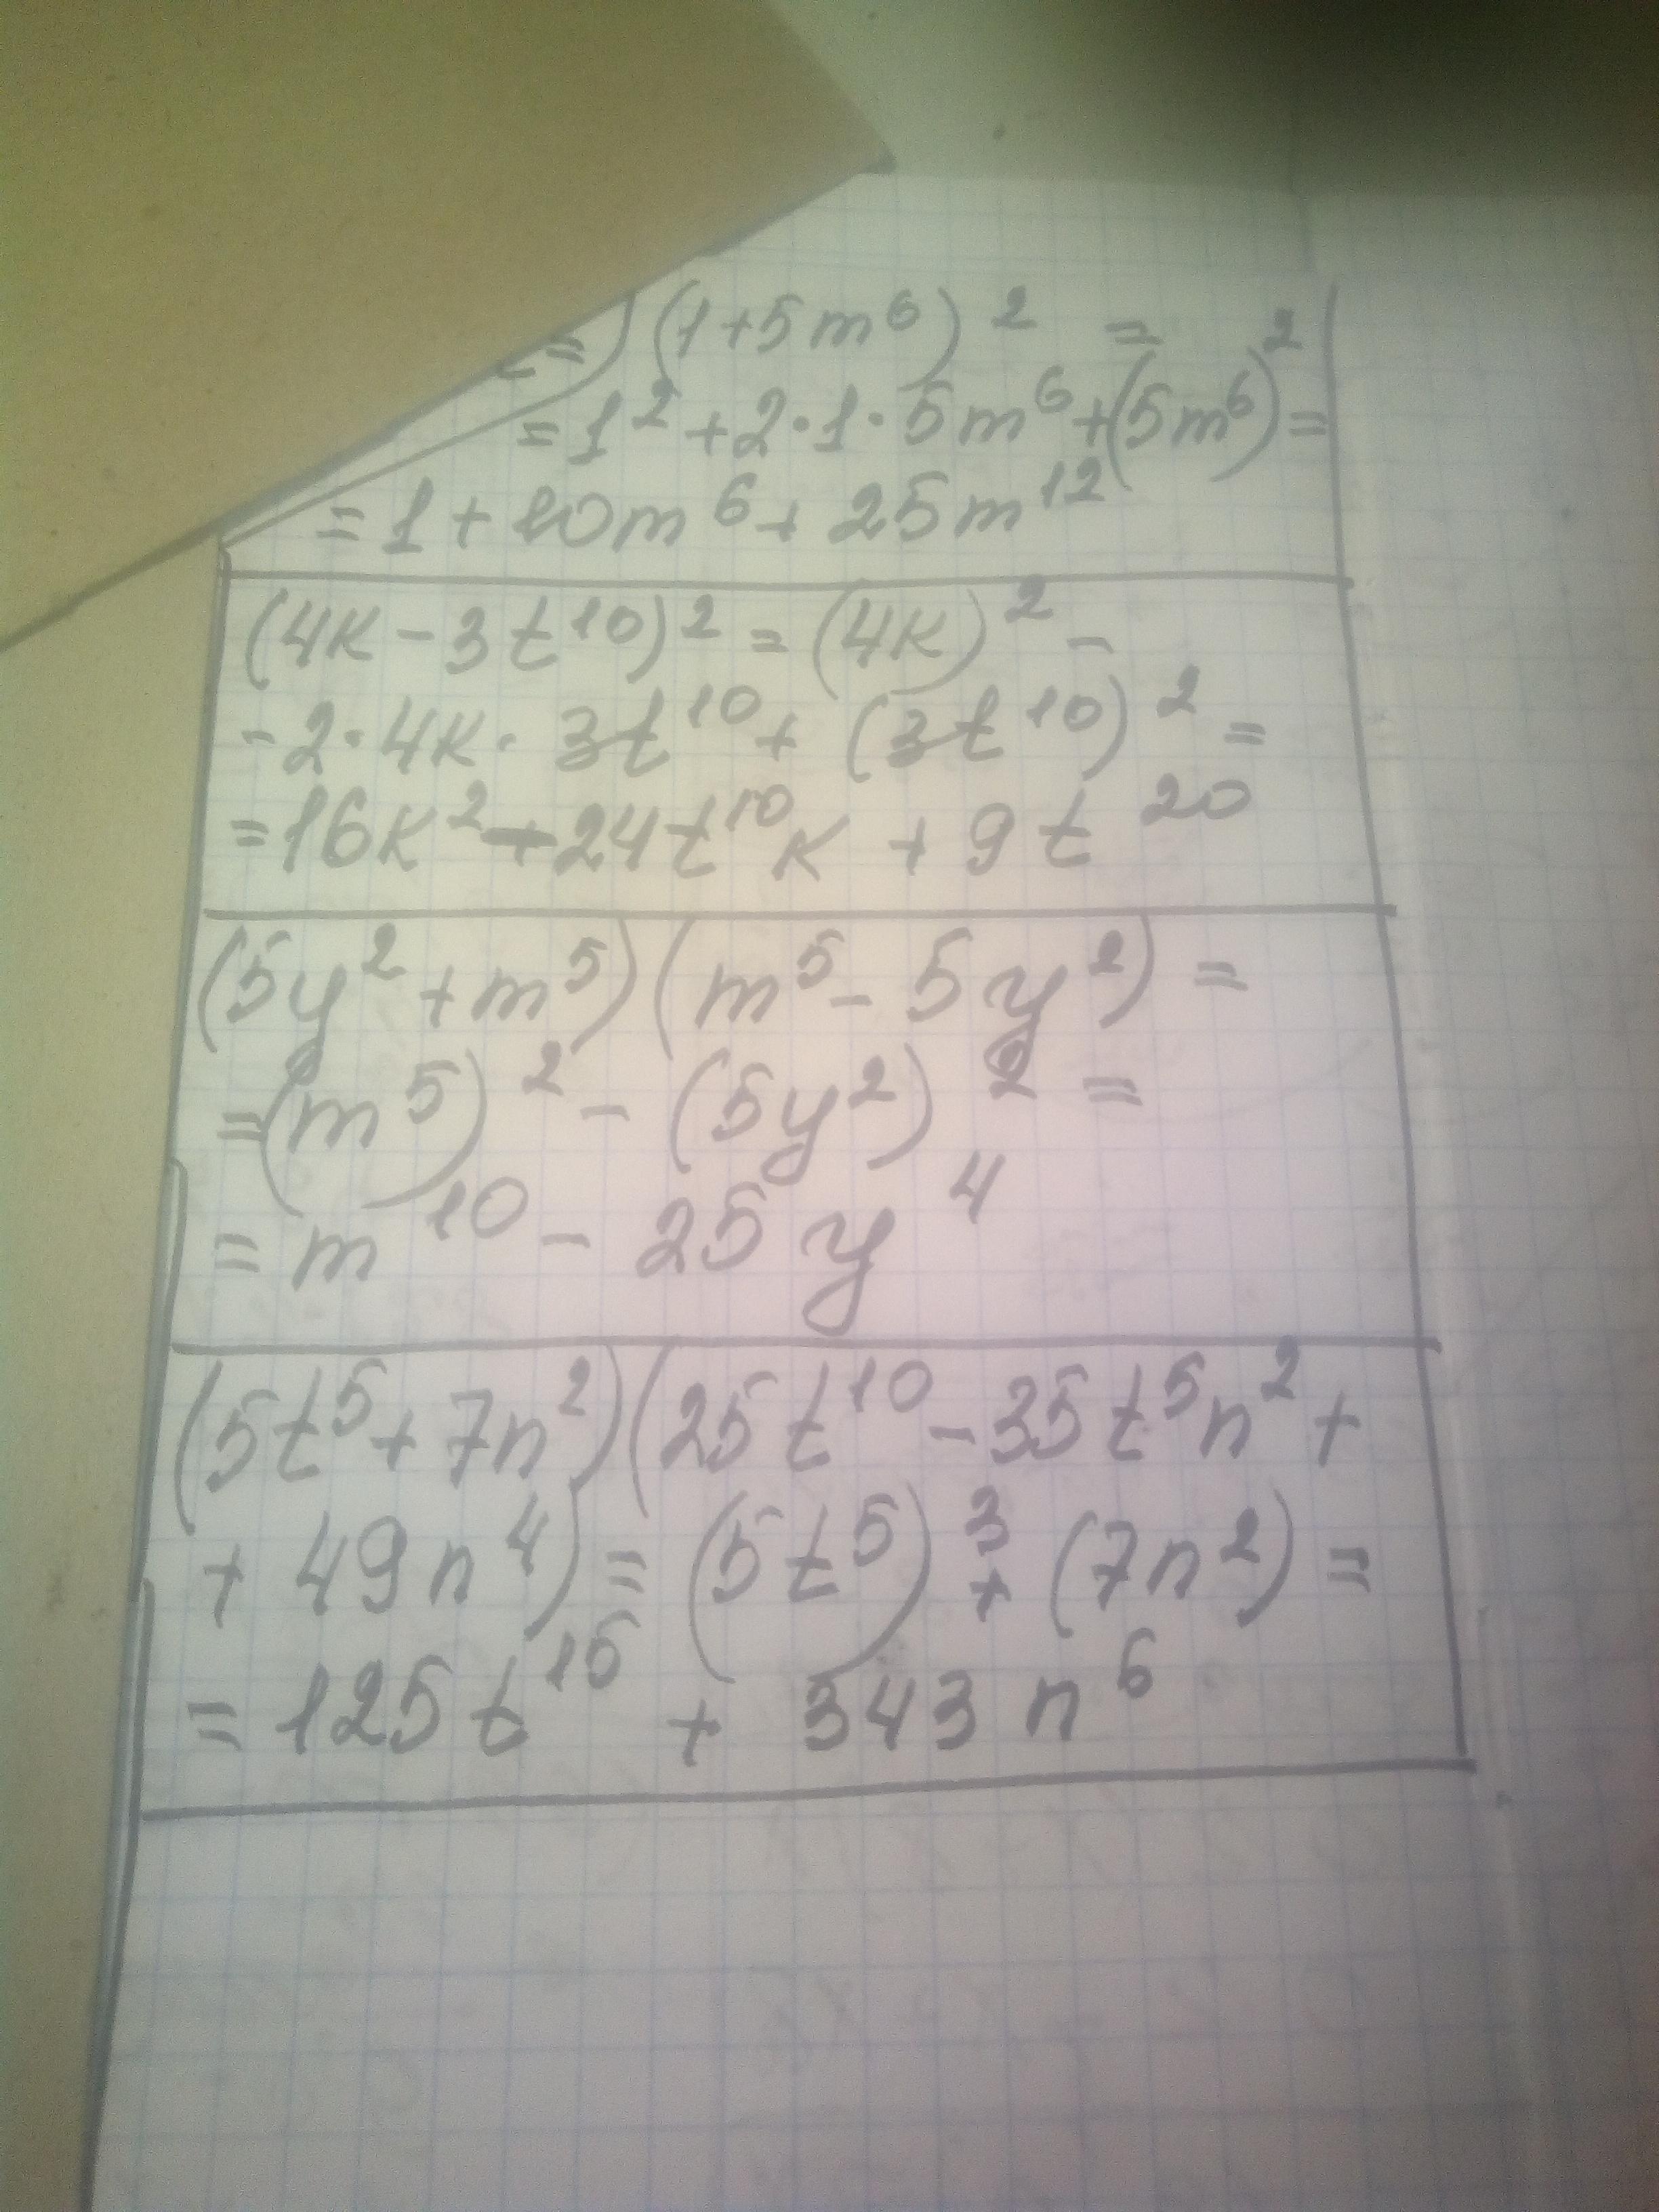 = (1+5m⁶)² =
= 1² + 2·1·5m⁶ + (5m⁶)² =
= 1 + 10m⁶ + 25m¹²
(4к - 3t¹⁰)² = (4к)² -
- 2·4к·3t¹⁰ + (3t¹⁰)² =
= 16к² - 24t¹⁰к + 9t²⁰
(5y² + m⁵)(m⁵ - 5y²) =
= (m⁵)² - (5y²)² =
= m¹⁰ - 25y⁴
(5t⁵ + 7n²)(25t¹⁰ - 35t⁵n² +
+ 49n⁴) = (5t⁵)³ + (7n²) =
= 125t¹⁵ + 343n⁶